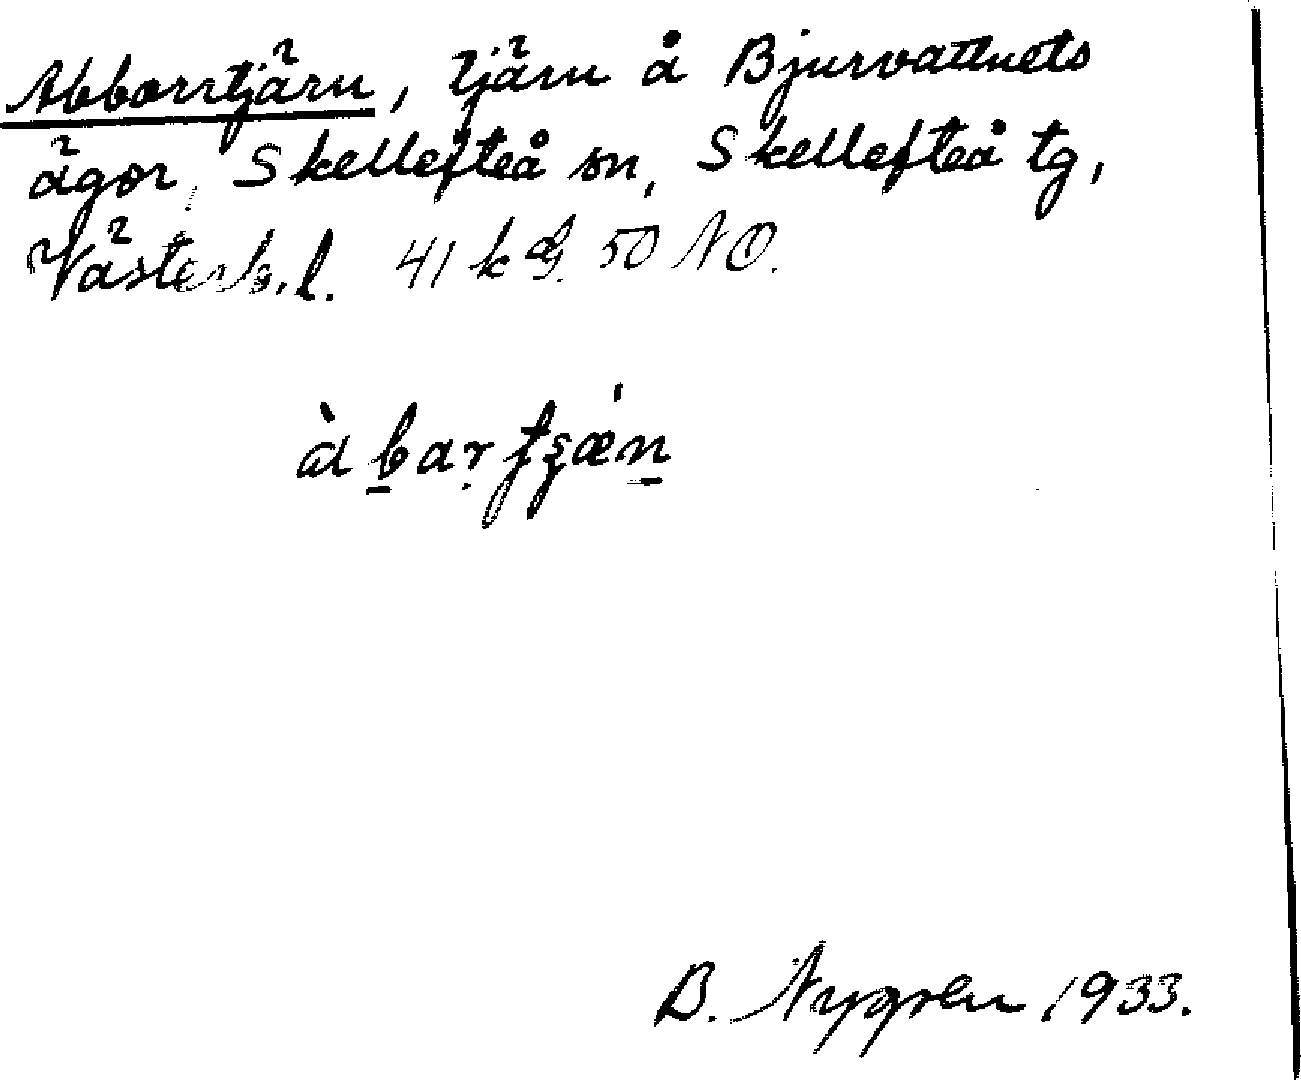 Abborrtjärn, tjärn å Bjurvattnets
ägor, Skellefteå sn, Skellefteå tg,
Västerb. l. 41 k 50 NO.
B. Nygren 1933.